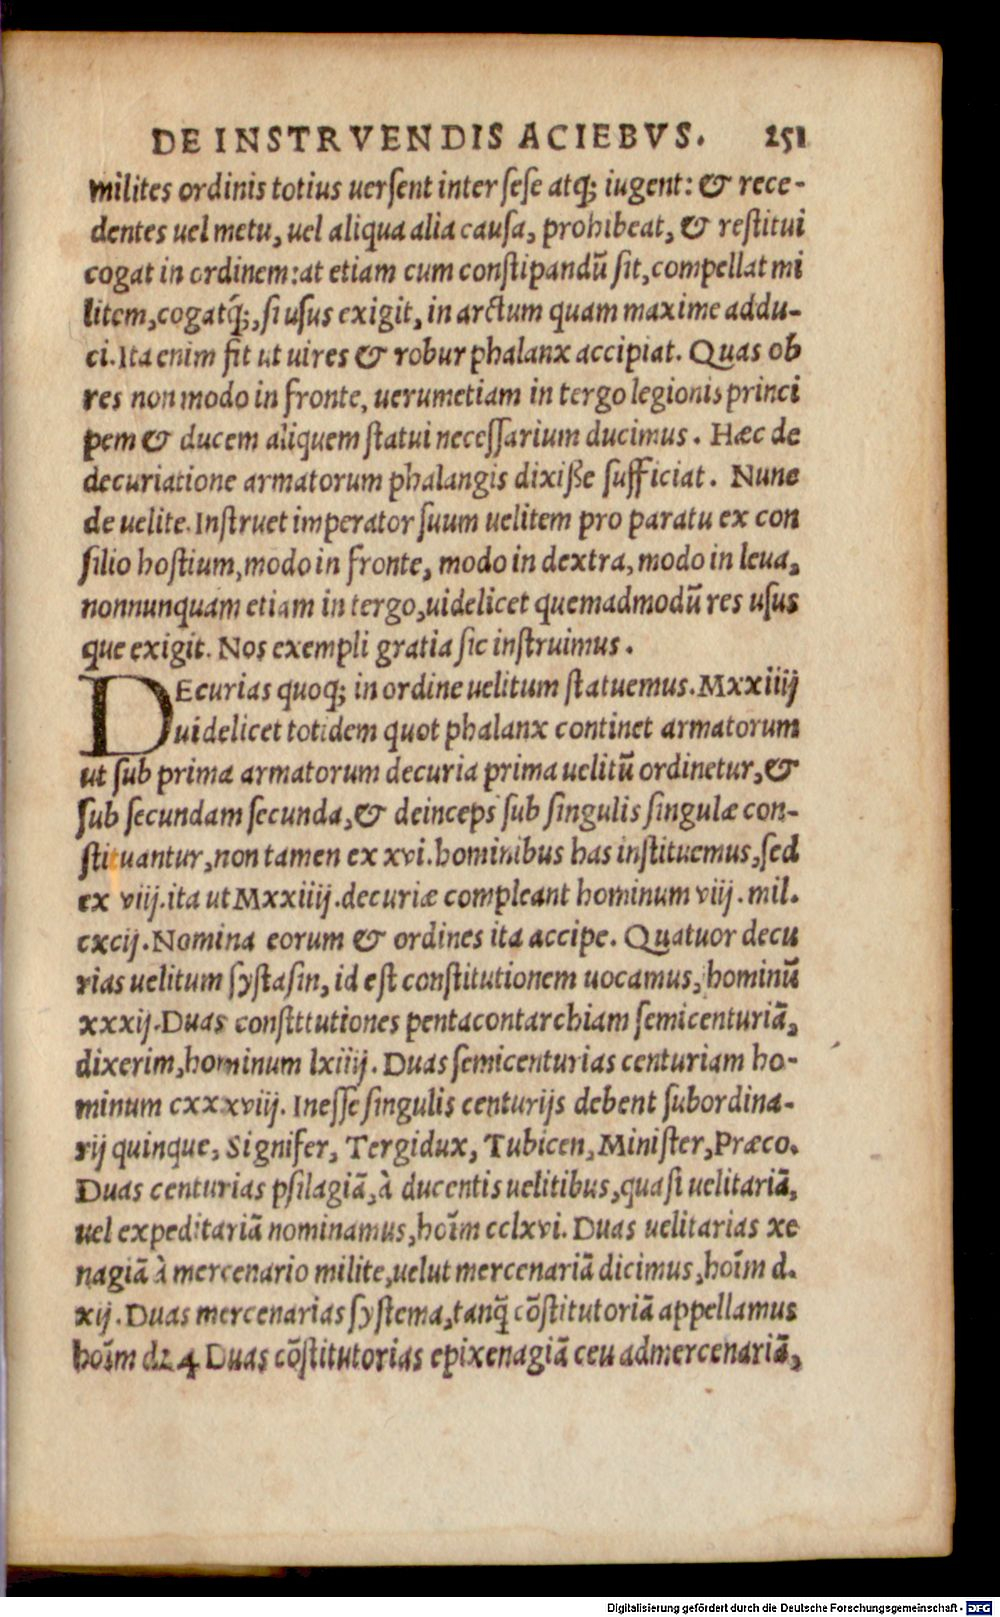 DE INSTRVENDIS ACIEBVS. 251
milites ordinis totius uerſent inter ſeſe atq; iugent: & rece-
dentes uel metu, uel aliqua alia cauſa, prohibeat, & reſtitui
cogat in ordinem: at etiam cum conſtipandū ſit, compellat mi
litem, cogatq́;, ſi uſus exigit, in arctum quam maxime addu-
ci. Ita enim fit ut uires & robur phalanx accipiat. Quas ob
res non modo in fronte, uerumetiam in tergo legionis princi
pem & ducem aliquem ſtatui neceſſarium ducimus. Hæc de
decuriatione armatorum phalangis dixiſſe ſufficiat. Nunc
de uelite. Inſtruet imperator ſuum uelitem pro paratu ex con
ſilio hoſtium, modo in fronte, modo in dextra, modo in leua,
nonnunquam etiam in tergo, uidelicet quemadmodū res uſus
que exigit. Nos exempli gratia ſic inſtruimus.
DEcurias quoq; in ordine uelitum ſtatuemus. Mxxiiij
uidelicet totidem quot phalanx continet armatorum
ut ſub prima armatorum decuria prima uelitū ordinetur, &
ſub ſecundam ſecunda, & deinceps ſub ſingulis ſingulæ con-
ſtituantur, non tamen ex xvi. hominibus has inſtituemus, ſed
ex viij. ita ut Mxxiiij. decuriæ compleant hominum viij. mil.
cxcij. Nomina eorum & ordines ita accipe. Quatuor decu
rias uelitum ſyſtaſin, id eſt conſtitutionem uocamus, hominū
xxxij. Duas conſtttutiones pentacontarchiam ſemicenturiā,
dixerim, hominum lxiiij. Duas ſemicenturias centuriam ho-
minum cxxxviij. Ineſſe ſingulis centurijs debent ſubordina-
rij quinque, Signifer, Tergidux, Tubicen, Miniſter, Præco.
Duas centurias pſilagiā, à ducentis uelitibus, quaſi uelitariā,
uel expeditariā nominamus, hoīm cclxvi. Duas uelitarias xe
nagiā à mercenario milite, uelut mercenariā dicimus, hoīm d.
xij. Duas mercenarias ſyſtema, tanq̄ cōſtitutoriā appellamus
hoīm Duas cōſtitutorias epixenagiā ceu admercenariā,
Digitalisierung gefördert durch die Deutsche Forschungsgemeinschaft - DFG